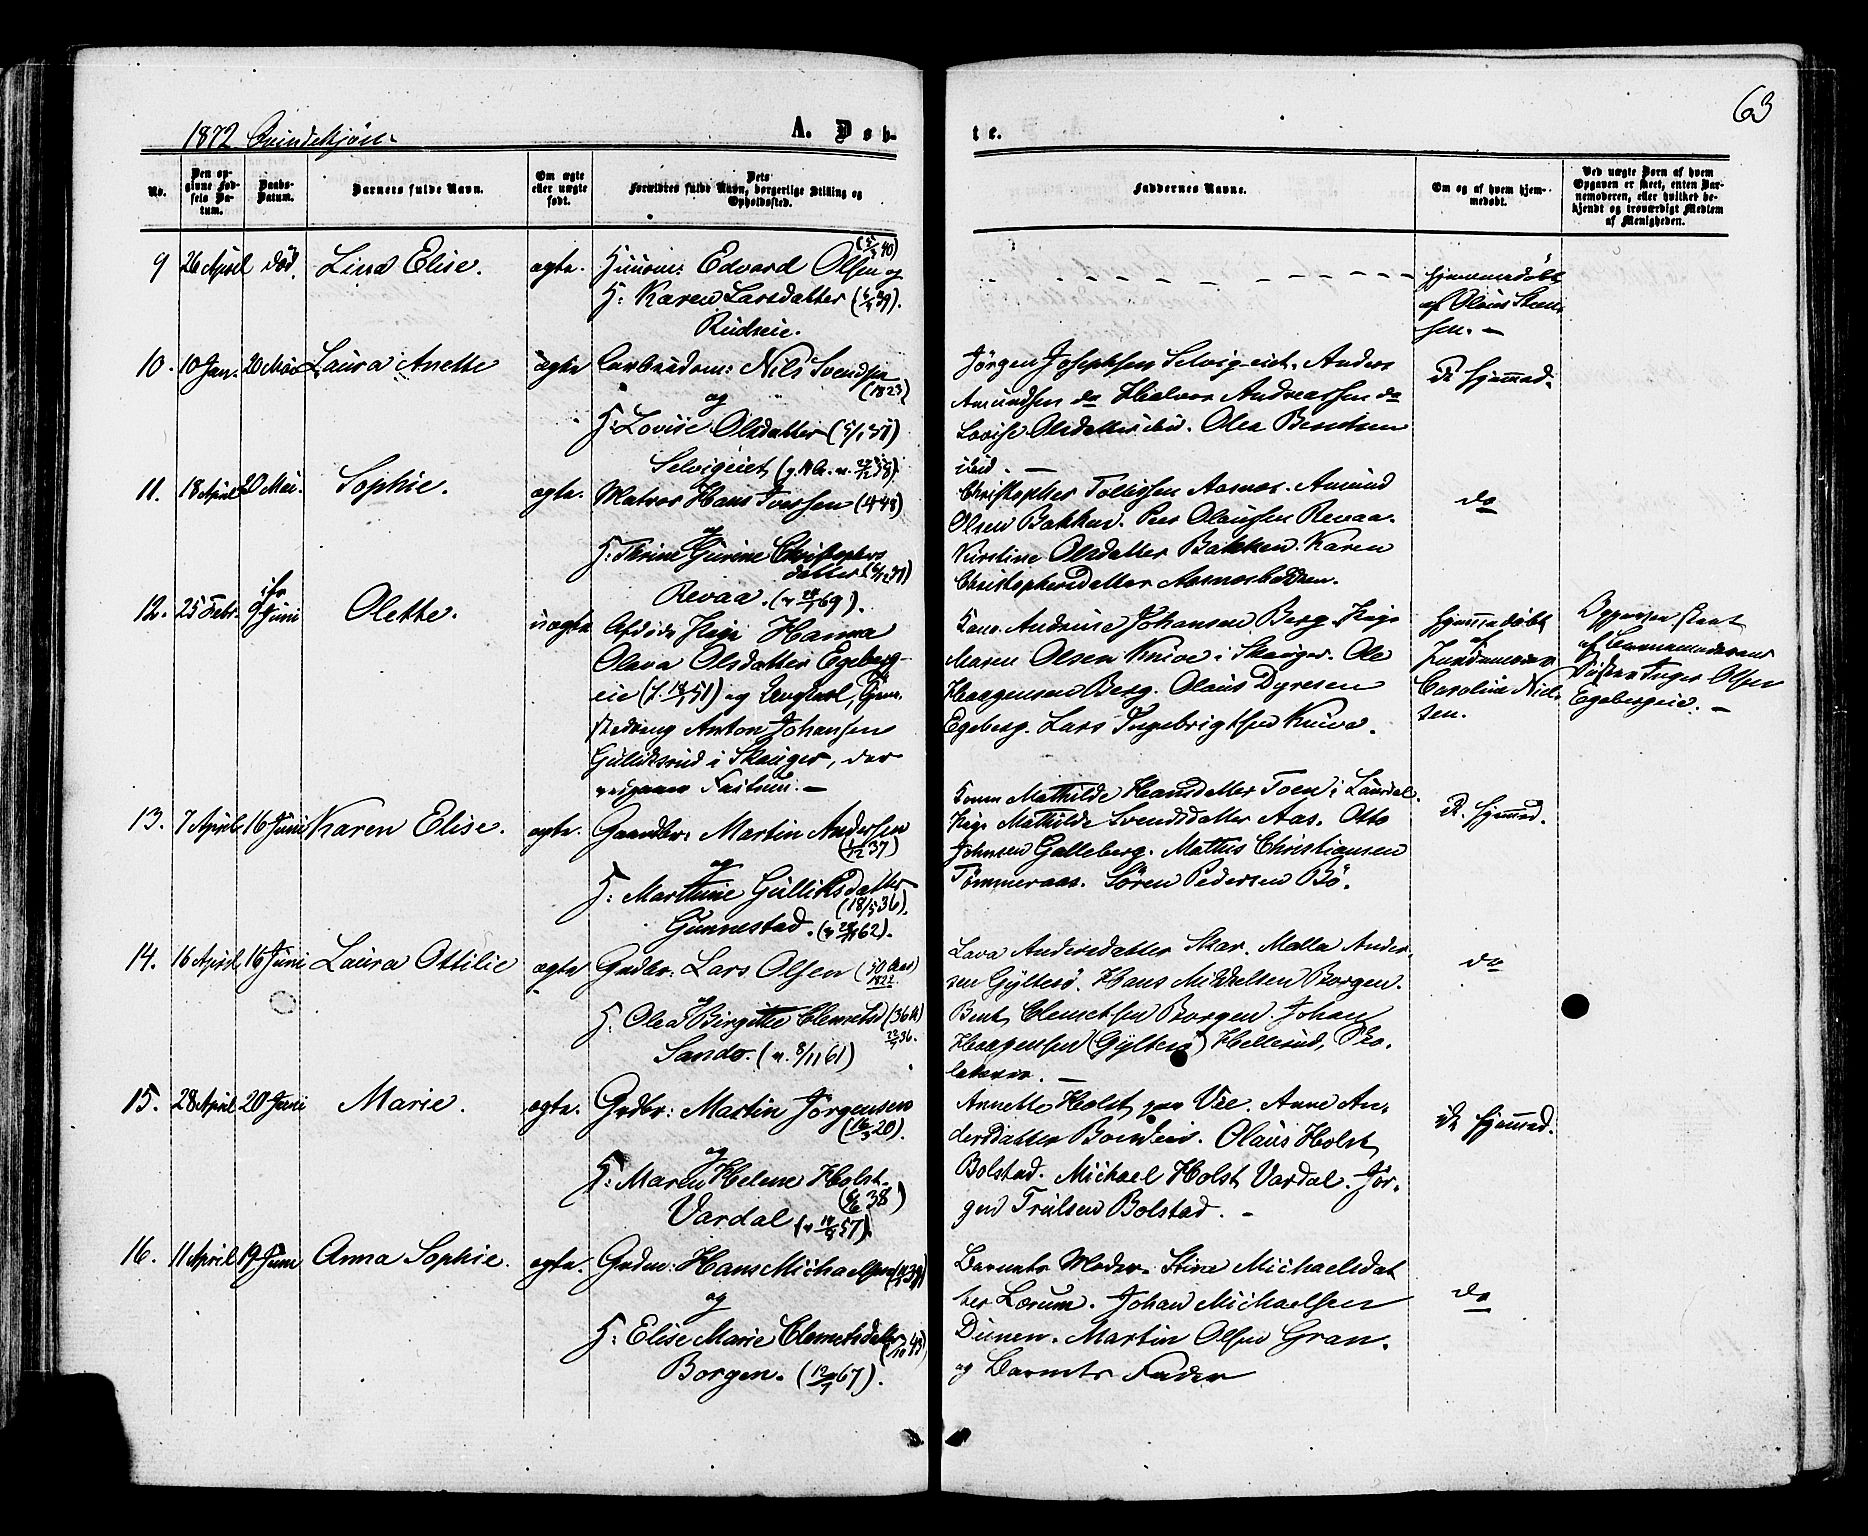 63
1872 Qvindekjøn.
A. Døb-
te.
No.
Den opgivne Fødsels Datum.
Daabs-Datum.
Barnets fulde Navn.
Om ægte eller uægte født.
Dets Forældres fulde Navn, borgerlige Stilling og Opholdssted.
Faddernes Navne.
Om og af hvem hjemmedøbt.
Ved uægte Børn af hvem Opgaven er skeet, enten Barnemoderen, eller hvilket bekjendt og troværdigt Medlem af Menigheden.
9 26 April død. Lina Elise. ægte.
Edvard Olsen og
H: Karen Larsdatter
Rudseie.
hjemmedøbt
af Olaus
sen. –
10. 10 Jan. 20 Mai Laura Anette ægte
Nils Svendsen
(1823)
og
H: Lovise Olsdatter
Selvigeiet
Jørgen Josephsen Selvigeiet. Anders
Amundsen do Halvor Andreassen do
Lovise Olsdatter ibid. Olea Bentsen
ibid. –
ik hjemmed.
11. 18 April 20 Mai. Sophie. ægte.
Matros Hans Iversen
og
H: Thrine Gurine Christophers
datter
Revaa.
Christopher Tollefsen Aasnæs. Amund
Olsen Bakken. Peer Olaussen Revaa.
Kirstine Olsdatter Bakken. Karen
Christophersdatter
do
12. 25 Febr. 9 Juni Olette. uægte
Pige Hanna
Olava Olsdatter Egeberg-
eie og Ungkarl,
Anton Johansen
i Skouger, der
Kone Andrine Johansen Berg. Pige
Maren Olsen Knive i Skouger. Ole
Haagensen Berg. Olaus Dyresen
Egeberg. Lars Ingebrigtsen Knive.
hjemmedøbt
af
Jordemoder
Caroline Niel-
sen.
Opgaven skeet
af Barnemoderens
Søster Inger Olsen
Egebergeie. –
13. 7 April 16 Juni Karen Elise. ægte.
Gaardbr: Martin Andersen
og
H: Marthine Gulliksdatter
(18/5 36).
Gunnestad.
Kone Mathilde Hansdatter Toen i Sandal.
Pige Mathilde Svendsdatter Aas. Otto
Johnsen Galleberg. Mathis Christiansen
Tømmeraas. Søren Pedersen Bø.
ik. hjemmed.
14. 16 April 16 Juni Laura Ottilie ægte
Grdbr. Lars Olsen (50 Aar)
1822
og
H. Olea Birgitte Clemets
Sando. (v. 8/11 61)
Lava Andersdatter Skar. Malla Ander-
sen Gyltesø. Hans Mikkelsen Borgen.
Bent Clemetsen Borgen. Johan
Haagensen (Gyltesø) Hellerud,
do
15. 28 April 20 Juni Marie. ægte.
Grdbr: Martin Jørgensen
og
H: Maren Helene Holst.
Vardal
Annette Holst paa Vee. Anne An-
dersdatter. Olaus Holst
Bolstad. Michael Holst Vardal. Jør-
gen Truelsen Bolstad. –
ik hjemmed.
16. 11 April Juni Anna Sophie. ægte.
Hans Michaelsen
og
H: Elise Marie Clemetsdatter
Borgen.
Barnets Moder. Stine Michaelsdat
ter Lorum. Johan Michaelsen
Dunen. Martin Olsen Gran.
og Barnets Fader
do